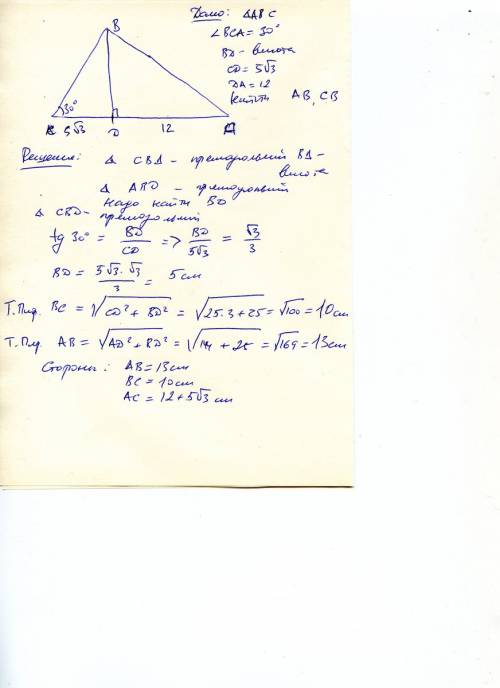 Дано: △ABC
∠BCA = 30°
BD - высота
CD = 5√3
DA = 12
Найти AB, CB
B
30°
C 5√3 D 12 A
Решение: △ CBD - прямоугольный BD - высота
△ ABD - прямоугольный
Надо найти BD
△ CBD - прямоугольный
tg 30° = BD/CD => BD/5√3 = √3/3
BD = 5√3·√3/3 = 5 см
Т. Пиф. BC = √(CD² + BD²) = √(25·3+25) = √100 = 10 см
Т. Пиф. AB = √(AD² + BD²) = √(144 + 25) = √169 = 13 см
Стороны: AB = 13 см
BC = 10 см
AC = 12 + 5√3 см